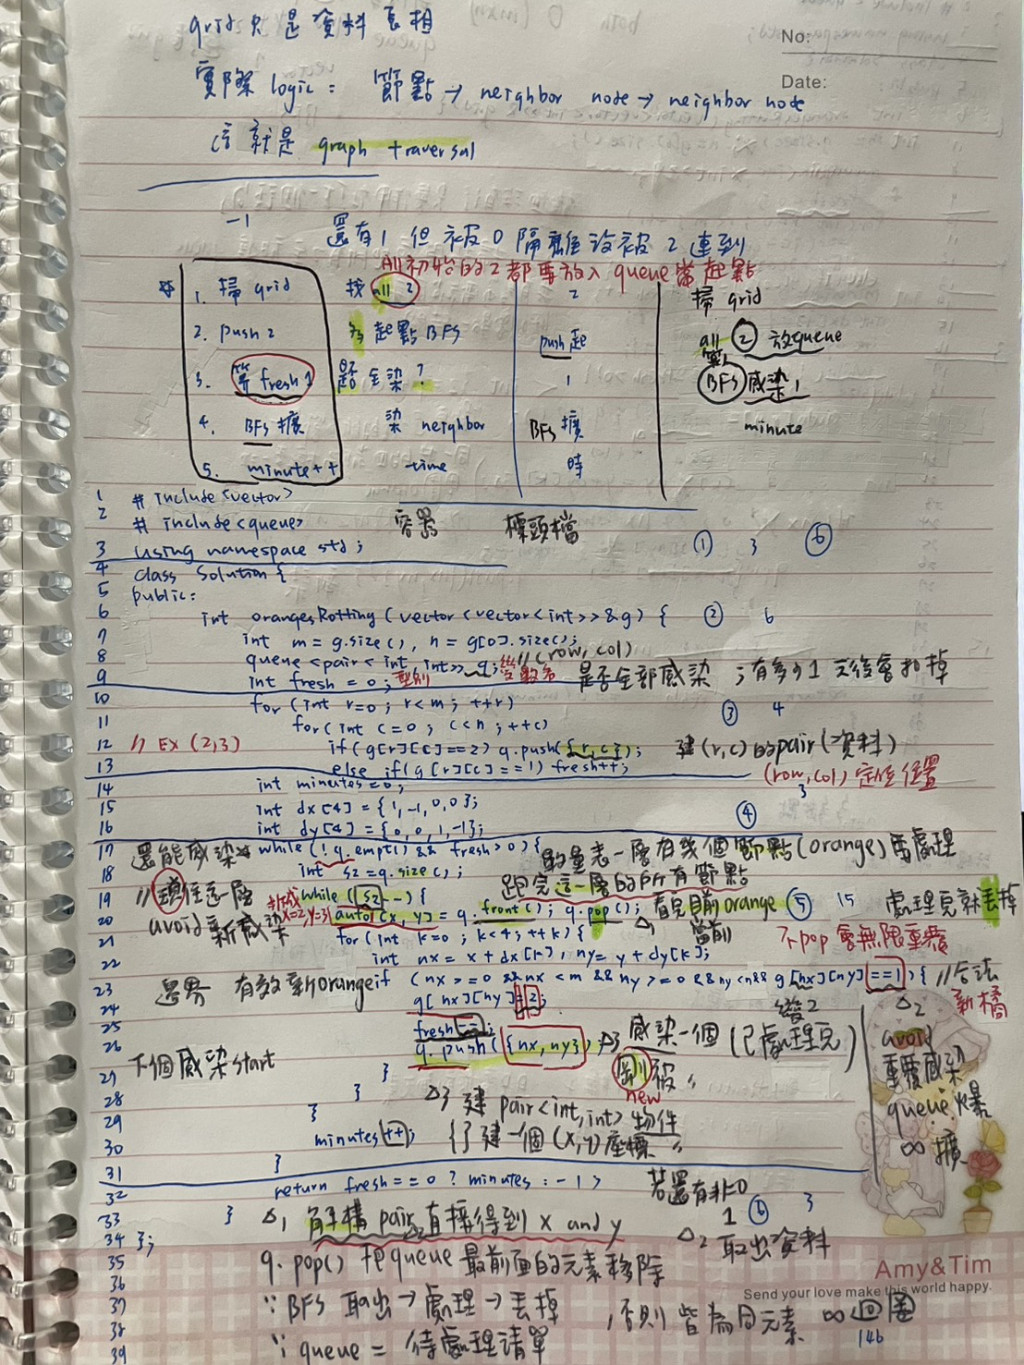 grid 只是資料長相
No:
實際 logic: 節點 → neighbor node → neighbor node
Date:
這就是 graph traversal
-1 還有1但被0隔離沒被2連到
All初始的2都要放入queue當起點
1. 掃 grid 找 all 2 2 掃 grid
2. push 2 為起點BFS push起 all ② 放queue
3. 算 fresh 1 是否全染? 1 BFS 感染1
4. BFS 擴 染 neighbor BFS 擴 minute
5. minute++ time 時
1 #include <vector>
2 #include <queue> 容器 標頭檔
3 using namespace std; ① 3 ⑥
4 class Solution {
5 public:
6 int orangesRotting (vector<vector<int>>&g) { ② 6
7 int m = g.size(), n = g[0].size();
8 queue<pair<int, int>> q; //(row, col)
9 int fresh = 0; 型別 變數名 是否全部感染 ;有多少1 天後會扣掉
10 for (int r=0; r<m; ++r)
11 for (int c=0; c<n; ++c) ③ 4
12 // Ex (2,3) if (g[r][c]==2) q.push({r,c}); 建(r,c)的pair(資料)
13 else if (g[r][c]==1) fresh++;
(row, col) 定位位置
14 int minutes=0; 3
15 int dx[4] = {1,-1,0,0};
16 int dy[4] = {0,0,1,-1}; ④
17 還能感染 while (!q.empty() && fresh>0) {
18 int sz=q.size(); 一層有幾個節點(orange)需處理
19 //鎖住這一層 while (sz--) { 跑完這一層的所有節點
20 avoid 新感染 拆成x=2,y=3 auto[x, y] = q.front(); q.pop(); 看見目前orange ⑤ 15 處理完就丟掉
21 for (int k=0; k<4; ++k) { △1 當前 不pop會無限重複
22 int nx = x + dx[k], ny = y + dy[k];
23 邊界 有效新orange if (nx>=0 && nx<m && ny>=0 && ny<n && g[nx][ny]==1) { //合法
24 g[nx][ny]=2; 變2 △2 新橘
25 fresh--; 感染一個 (已處理完) avoid
26 q.push({nx, ny}); △3 剛被 重複感染
27 下個感染start } new queue爆
28 } △3 建 pair<int,int> 物件 ∞ 擴
29 }
30 minutes++; {}建一個(x,y)座標
31 }
32 return fresh==0 ? minutes : -1; 若還有非0
33 } △1 解構 pair 直接得到 x and y 1 ⑥ 3
34 }; △2 取出資料
35 q.pop() 把queue最前面的元素移除
36
Amy&Tim
Send your love make this world happy.
37 ∵ BFS 取出→處理→丟掉 , 否則皆為同元素 ∞ 迴圈
38
39 ∵ queue = 待處理清單
146